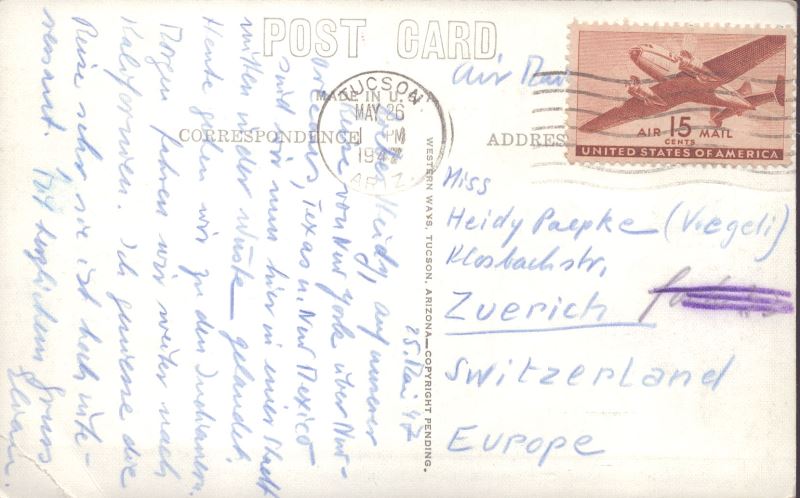 POST CARD
MADE IN U.S.A.
CORRESPONDENCE
ADDRESS
TUCSON
MAY 26
PM
1947
ARIZ.
AIR 15 MAIL
CENTS
UNITED STATES OF AMERICA
WESTERN WAYS, TUCSON, ARIZONA—COPYRIGHT PENDING.
Air Mail
Miss
Heidy Paepke (Voegeli)
Klosbachstr.
Zuerich
Switzerland
Europe
25. Mai 47
Liebe Heidy, auf unserer
Reise von New York über New-
Orleans, Texas u. New Mexico
sind wir nun hier in einer Stadt
mitten in der Wüste gelandet.
Heute gehen wir zu den Indianern.
Morgen fahren wir weiter nach
Kalifornien. Ich geniesse die
Reise sehr, sie ist hoch inte-
ressant.
Mit herzlichem Gruss